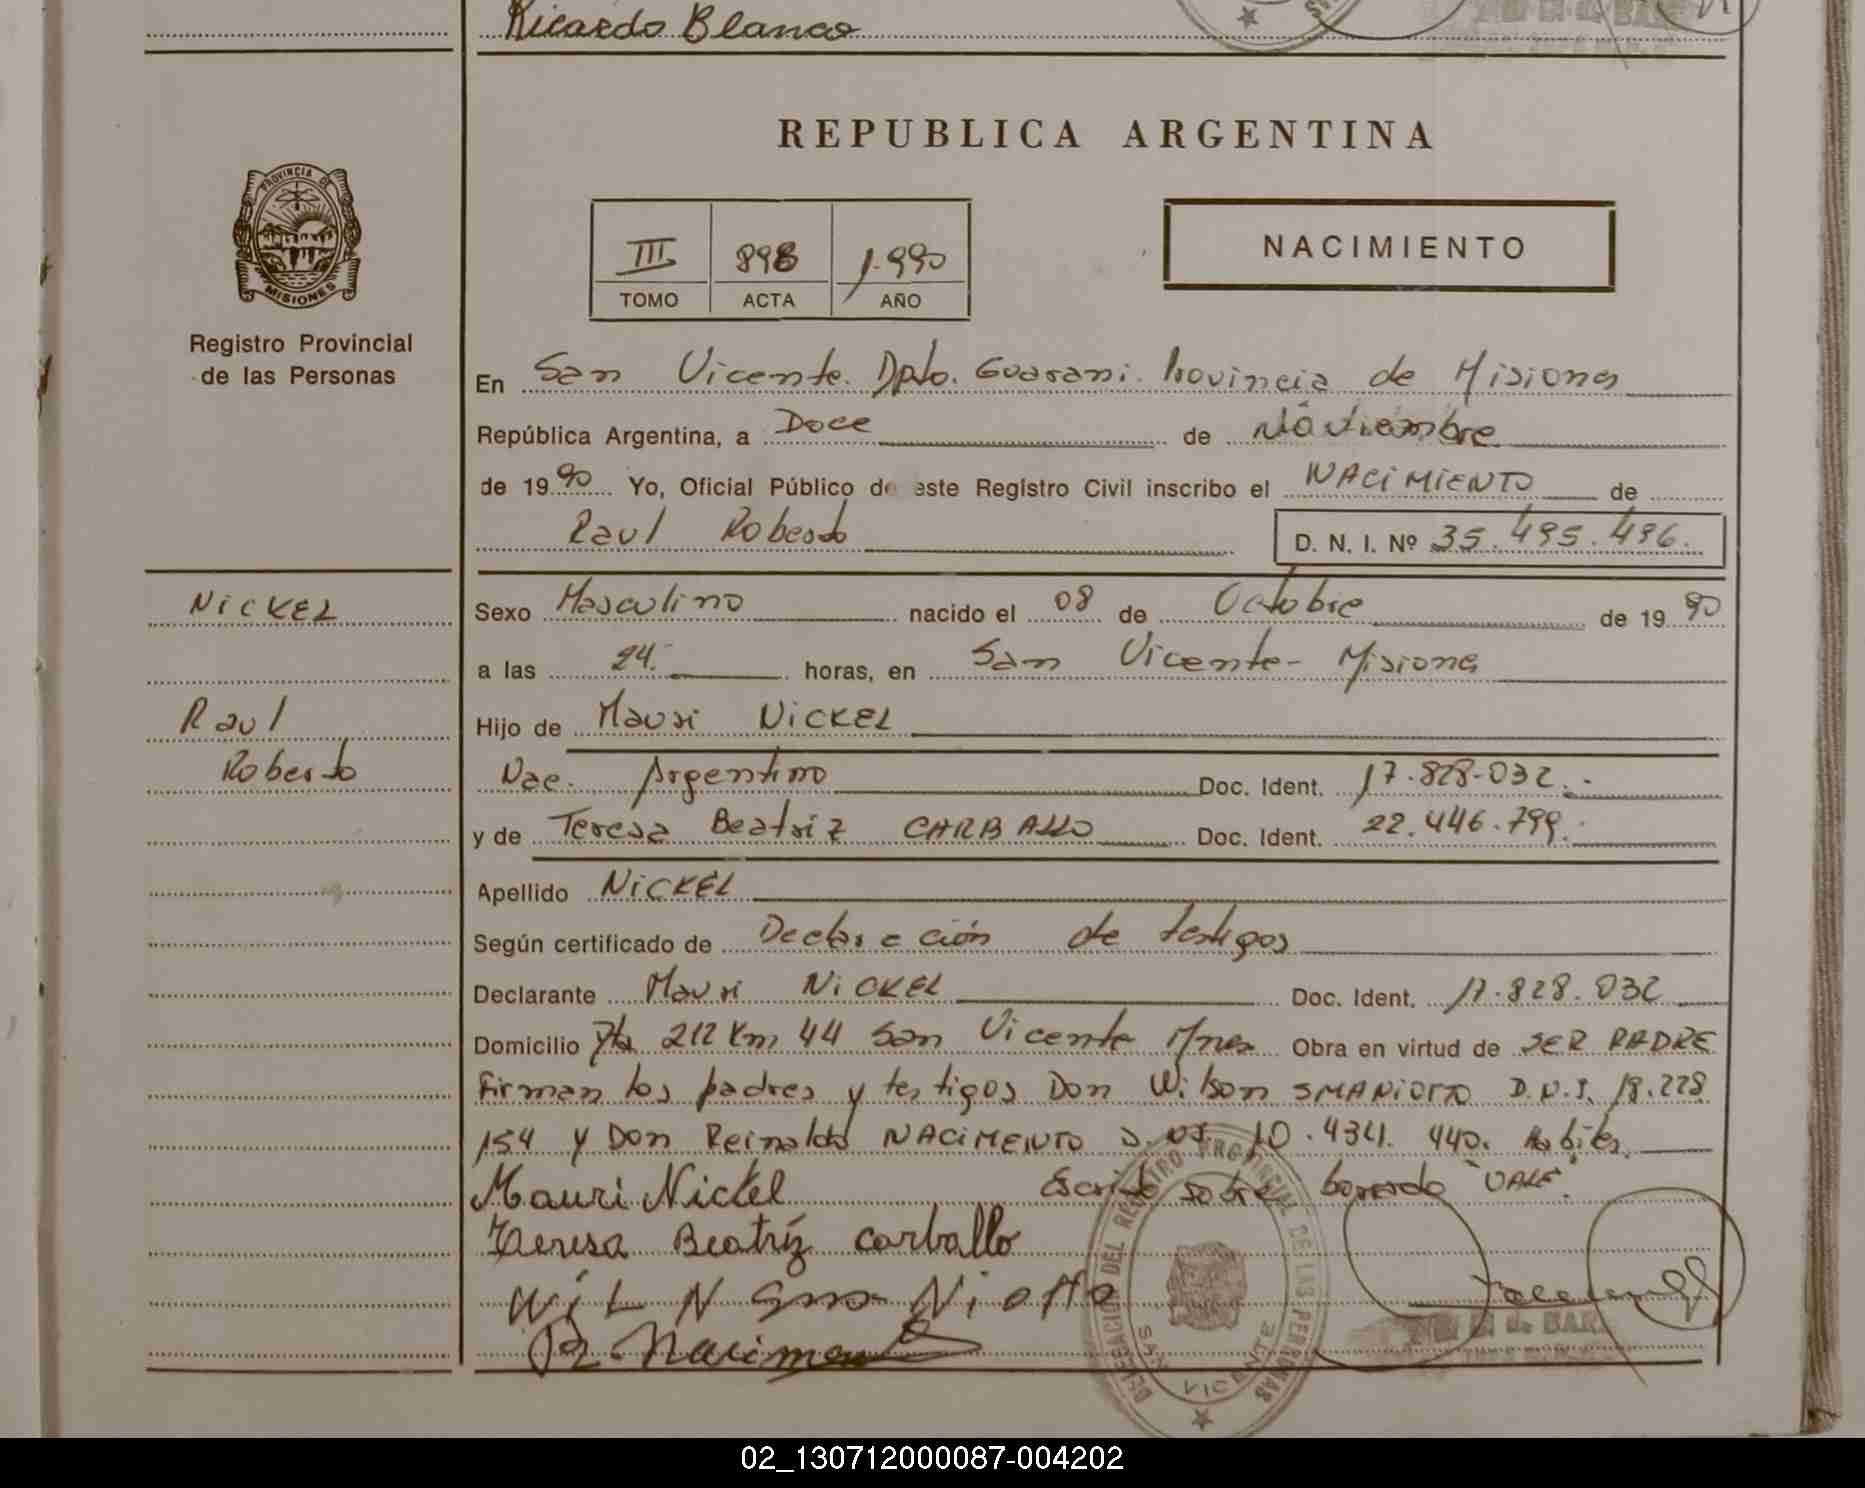 Ricardo Blanco
PROVINCIA DE
MISIONES
Registro Provincial
de las Personas
REPUBLICA ARGENTINA
III 898 1.990
TOMO ACTA AÑO
NACIMIENTO
En San Vicente. Dpto. Guarani. Provincia de Misiones
República Argentina, a Doce de Noviembre
de 1990 Yo, Oficial Público de este Registro Civil inscribo el NACIMIENTO de
Raul Roberto D. N. I. Nº 35.495.496.
NICKEL
Raul
Roberto
Sexo Masculino nacido el 08 de Octubre de 1990
a las 24. horas, en San Vicente - Misiones
Hijo de Mauri NICKEL
Nac. Argentino Doc. Ident. 17.828.032.-
y de Teresa Beatriz CARBALLO Doc. Ident. 22.446.799.-
Apellido NICKEL
Según certificado de Declaración de testigos
Declarante Mauri NICKEL Doc. Ident. 17.828.032
Domicilio Rta 212 Km 44 San Vicente Mnes Obra en virtud de SER PADRE
Firman los padres y testigos Don Wilson SMANIOTTO D.N.I. 18.228
154 y Don Reinaldo NACIMENTO D.N.I. 10.434. 440. Habiles.
Mauri Nickel Escrito sobre borrado "VALE".
Teresa Beatríz carballo
WiL N Sma Niotto
R. Nacimento
DELEGACION DEL REGISTRO PROVINCIAL DE LAS PERSONAS
SAN VICENTE
02_130712000087-004202